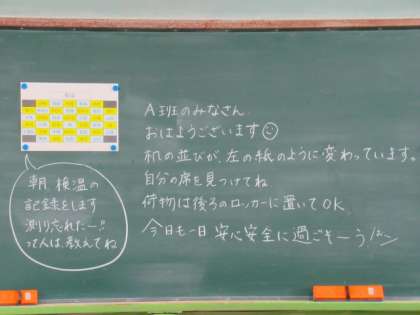 A班のみなさん
おはようございます
机の並びが、左の紙のように変わっています。
自分の席を見つけてね
荷物は後ろのロッカーに置いてOK
今日も一日安心安全に過ごそーう
朝 検温の
記録をします
測り忘れたー!!
って人は教えてね